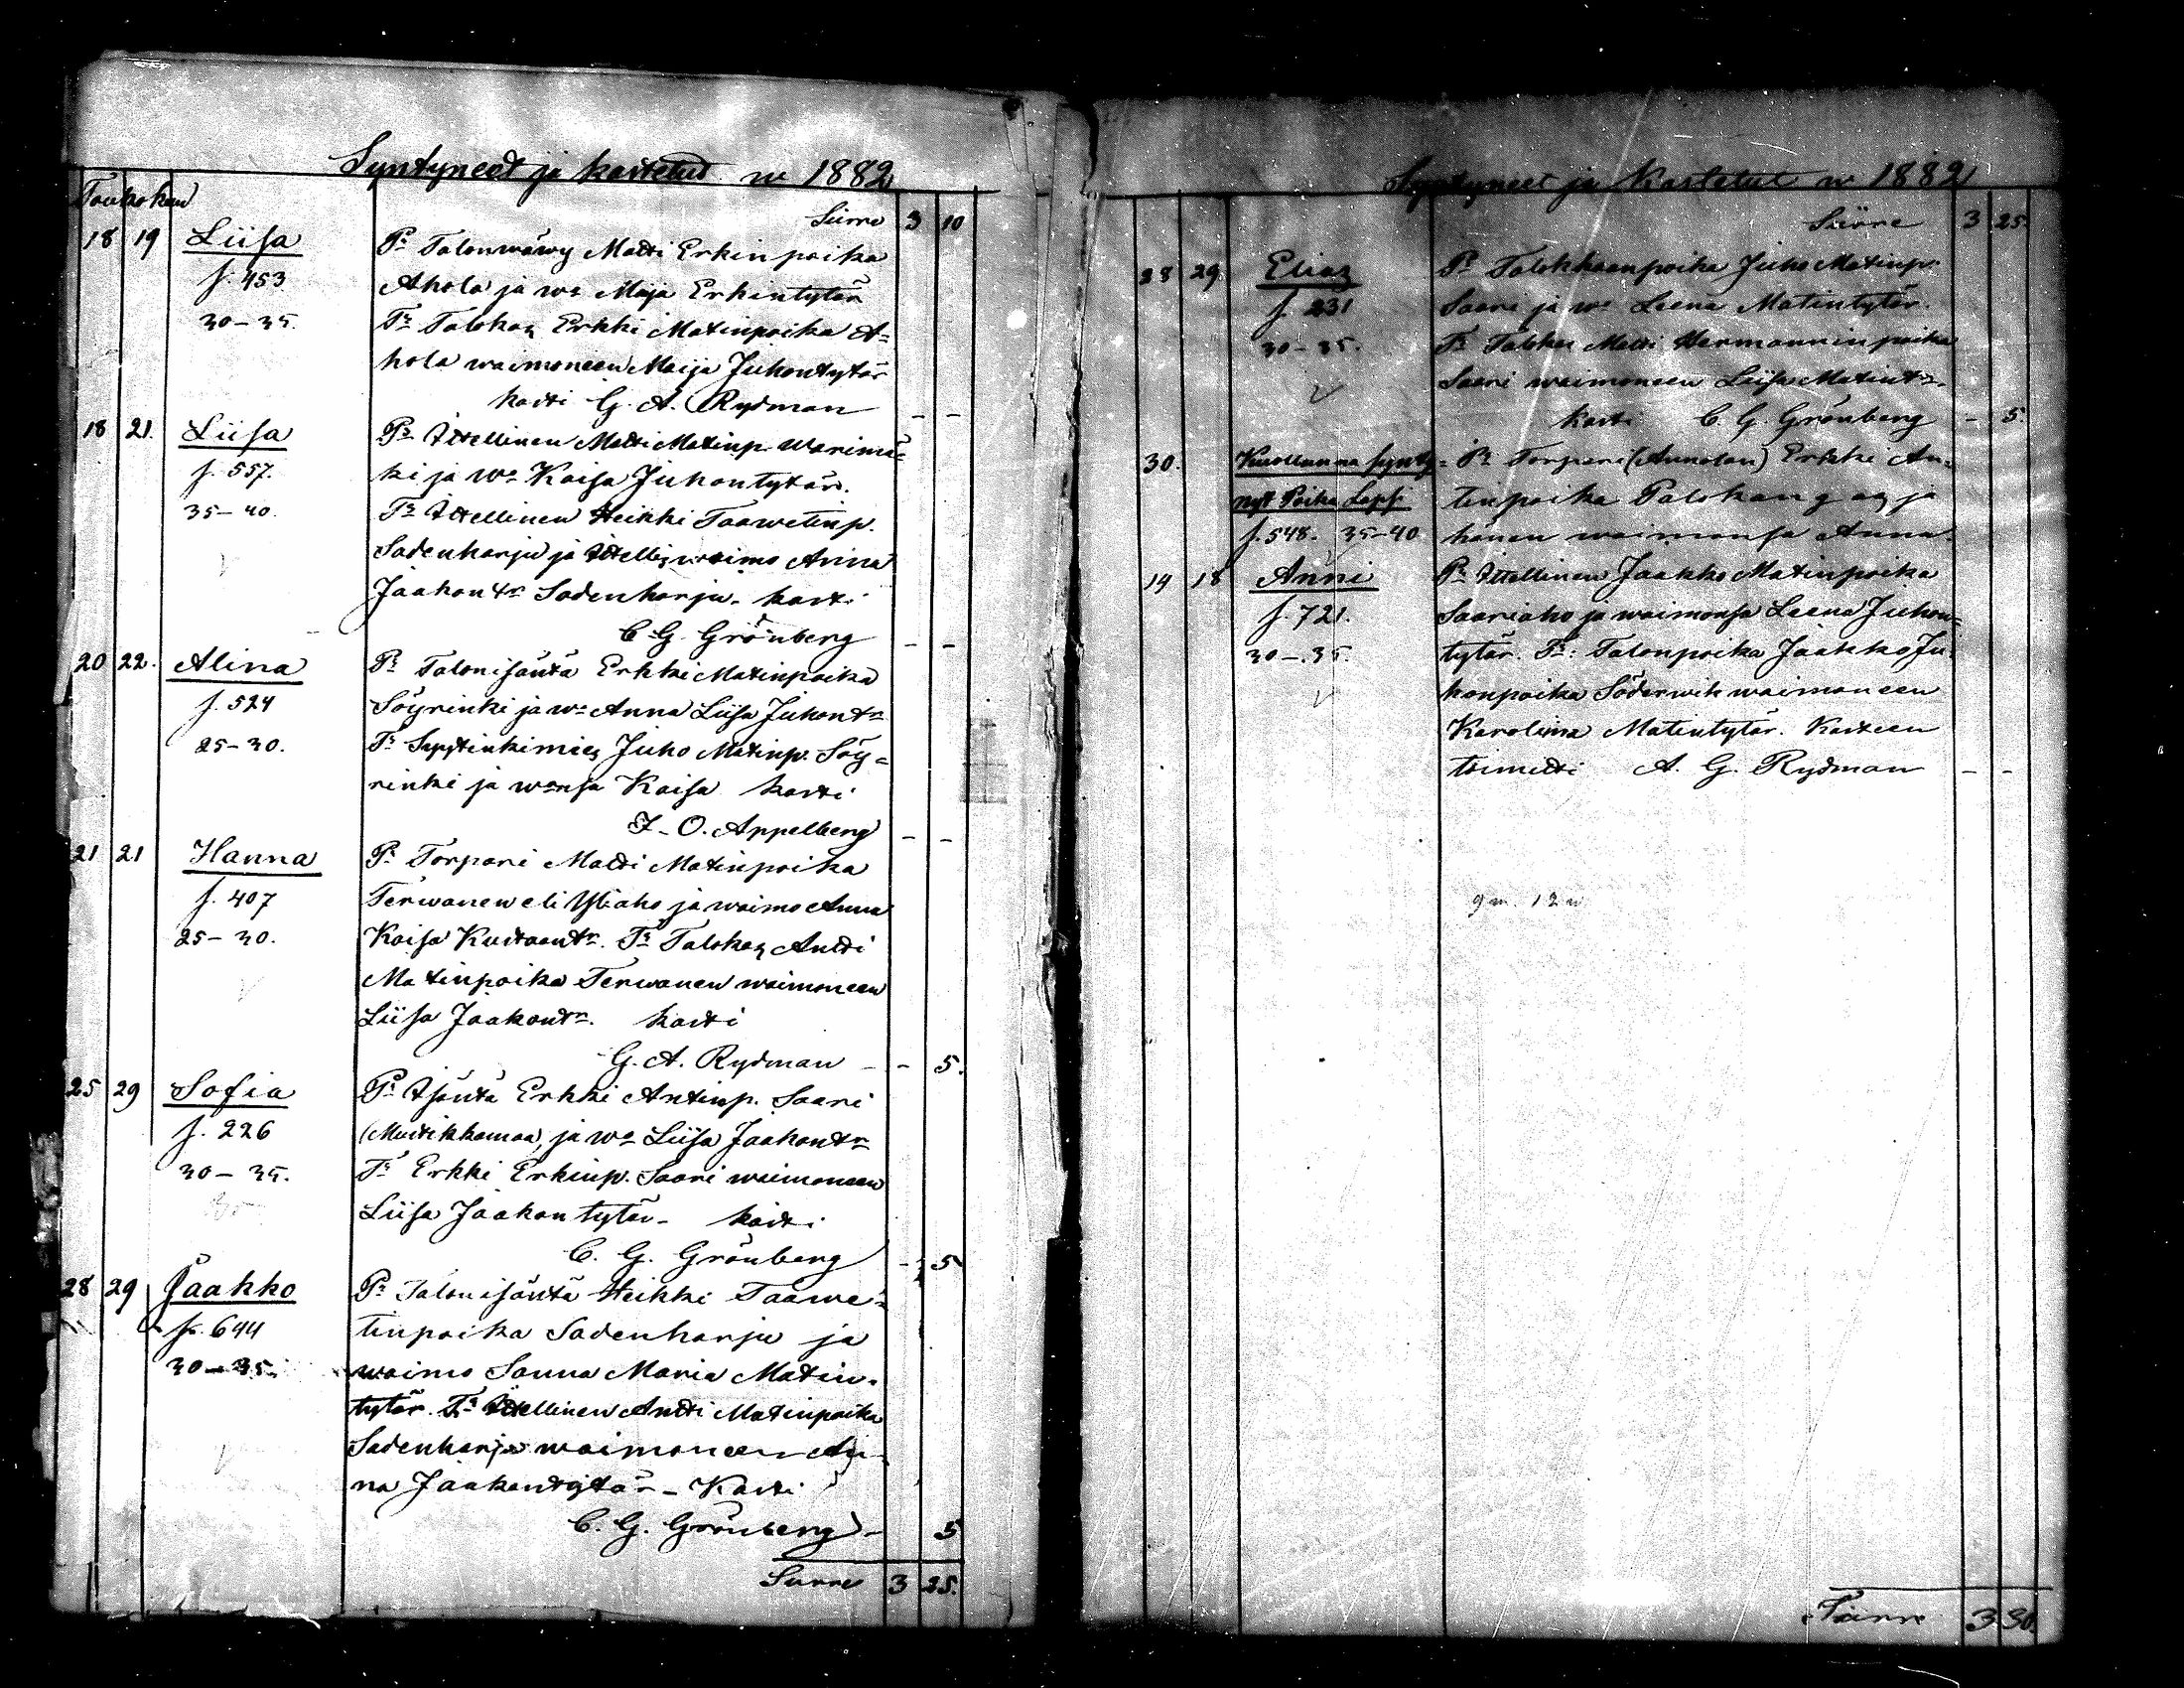 Syntyneet ja kastetut w 1882
Toukokuu
Siirre 3 10
18 19 Liisa Pr Talonwäwy Matti Erkinpoika
f. 453 Ahola ja wo Maja Erkintytär
30-35. Tr Talokas Erkki Matinpoika A=
hola waimoneen Maija Juhontytär
kasti G. A. Rydman - -
18 21. Liisa Pr Itellinen Matti Matinp. Warimä=
f. 557. ki ja wo Kaisa Juhontytär.
35-40. Tr Itellinen Heikki Taawetinp.
Sadenharju ja Itellis waimo Anna
Jaakontr Sadenharju. kasti
C. G. Grönberg - -
20 22. Alina Pr Talonisäntä Erkki Matinpoika
f. 524 Söyrinki ja wo Anna Liisa Juhontr
25-30. Tr Syytinkimies Juho Matinp. Söy=
rinki ja wonsa Kaisa kasti
J. O. Appelberg - -
21 21 Hanna Pr Torpari Matti Matinpoika
f. 407 Terwanen eli Yliaho ja waimo Anna
25-30. Kaisa Kustaantr. Tr Talokas Antti
Matinpoika Terwanen waimoneen
Liisa Jaakontr. kasti
G. A. Rydman - - 5.
25 29 Sofia Pr Isäntä Erkki Antinp. Saari
f. 226 (Mustikkamaa, ja wo Liisa Jaakontr
30-35. Tr Erkki Erkinp. Saari waimoneen
Liisa Jaakontytär - kasti
C. G. Grönberg - 5
28 29 Jaakko Pr Talonisäntä Heikki Taawe=
f. 644 tinpoika Sadenharju ja
30-35. waimo Sanna Maria Matin-
tytär. Tr Itellinen Antti Matinpoika
Sadenharju waimoneen An-
na Jaakontytär - Kasti
C. G. Grönberg - 5
Siirre 3 25.
Syntyneet ja Kastetut w 1882
Siirre 3 25.
28 29. Elias Pr Talokkaanpoika Juho Matinp.
f. 231 Saari ja wo Leena Matintytär.
30-35. Tr Talokas Matti Hermanninpoika
Saari waimoneen Liisa Matintr.
kasti C. G. Grönberg - 5.
30. Kuollunna synty= Pr Torpari (Annolan) Erkki An=
nyt Poika Lapsi tinpoika Palokangas ja
f. 548. 35-40 hänen waimonsa Anna.
14 18 Anni Pr Itellinen Jaakko Matinpoika
f. 721. Saariaho ja waimonsa Leena Juhon=
30-35. tytär. Tr: Talonpoika Jaakko Ju=
honpoika Söderwik waimoneen
Karolina Matintytär. Kasteen
toimitti A. G. Rydman - -
9 m. 12 n
Siirre 3 30.